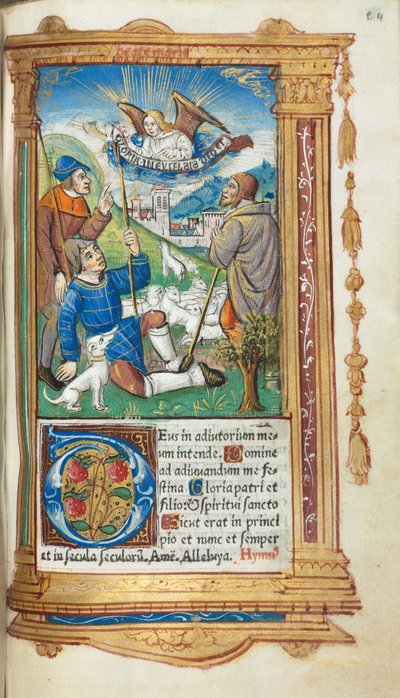 24
GLORIA IN EXCELSIS DEO ET
Deus in adiutorium me=
um intende. Domine
ad adiuuandum me fe=
stina Gloria patri et
filio: & spiritui sancto
Sicut erat in princi
pio et nunc et semper
et in secula seculorũ. Amẽ. Alleluya. Hymnꝰ